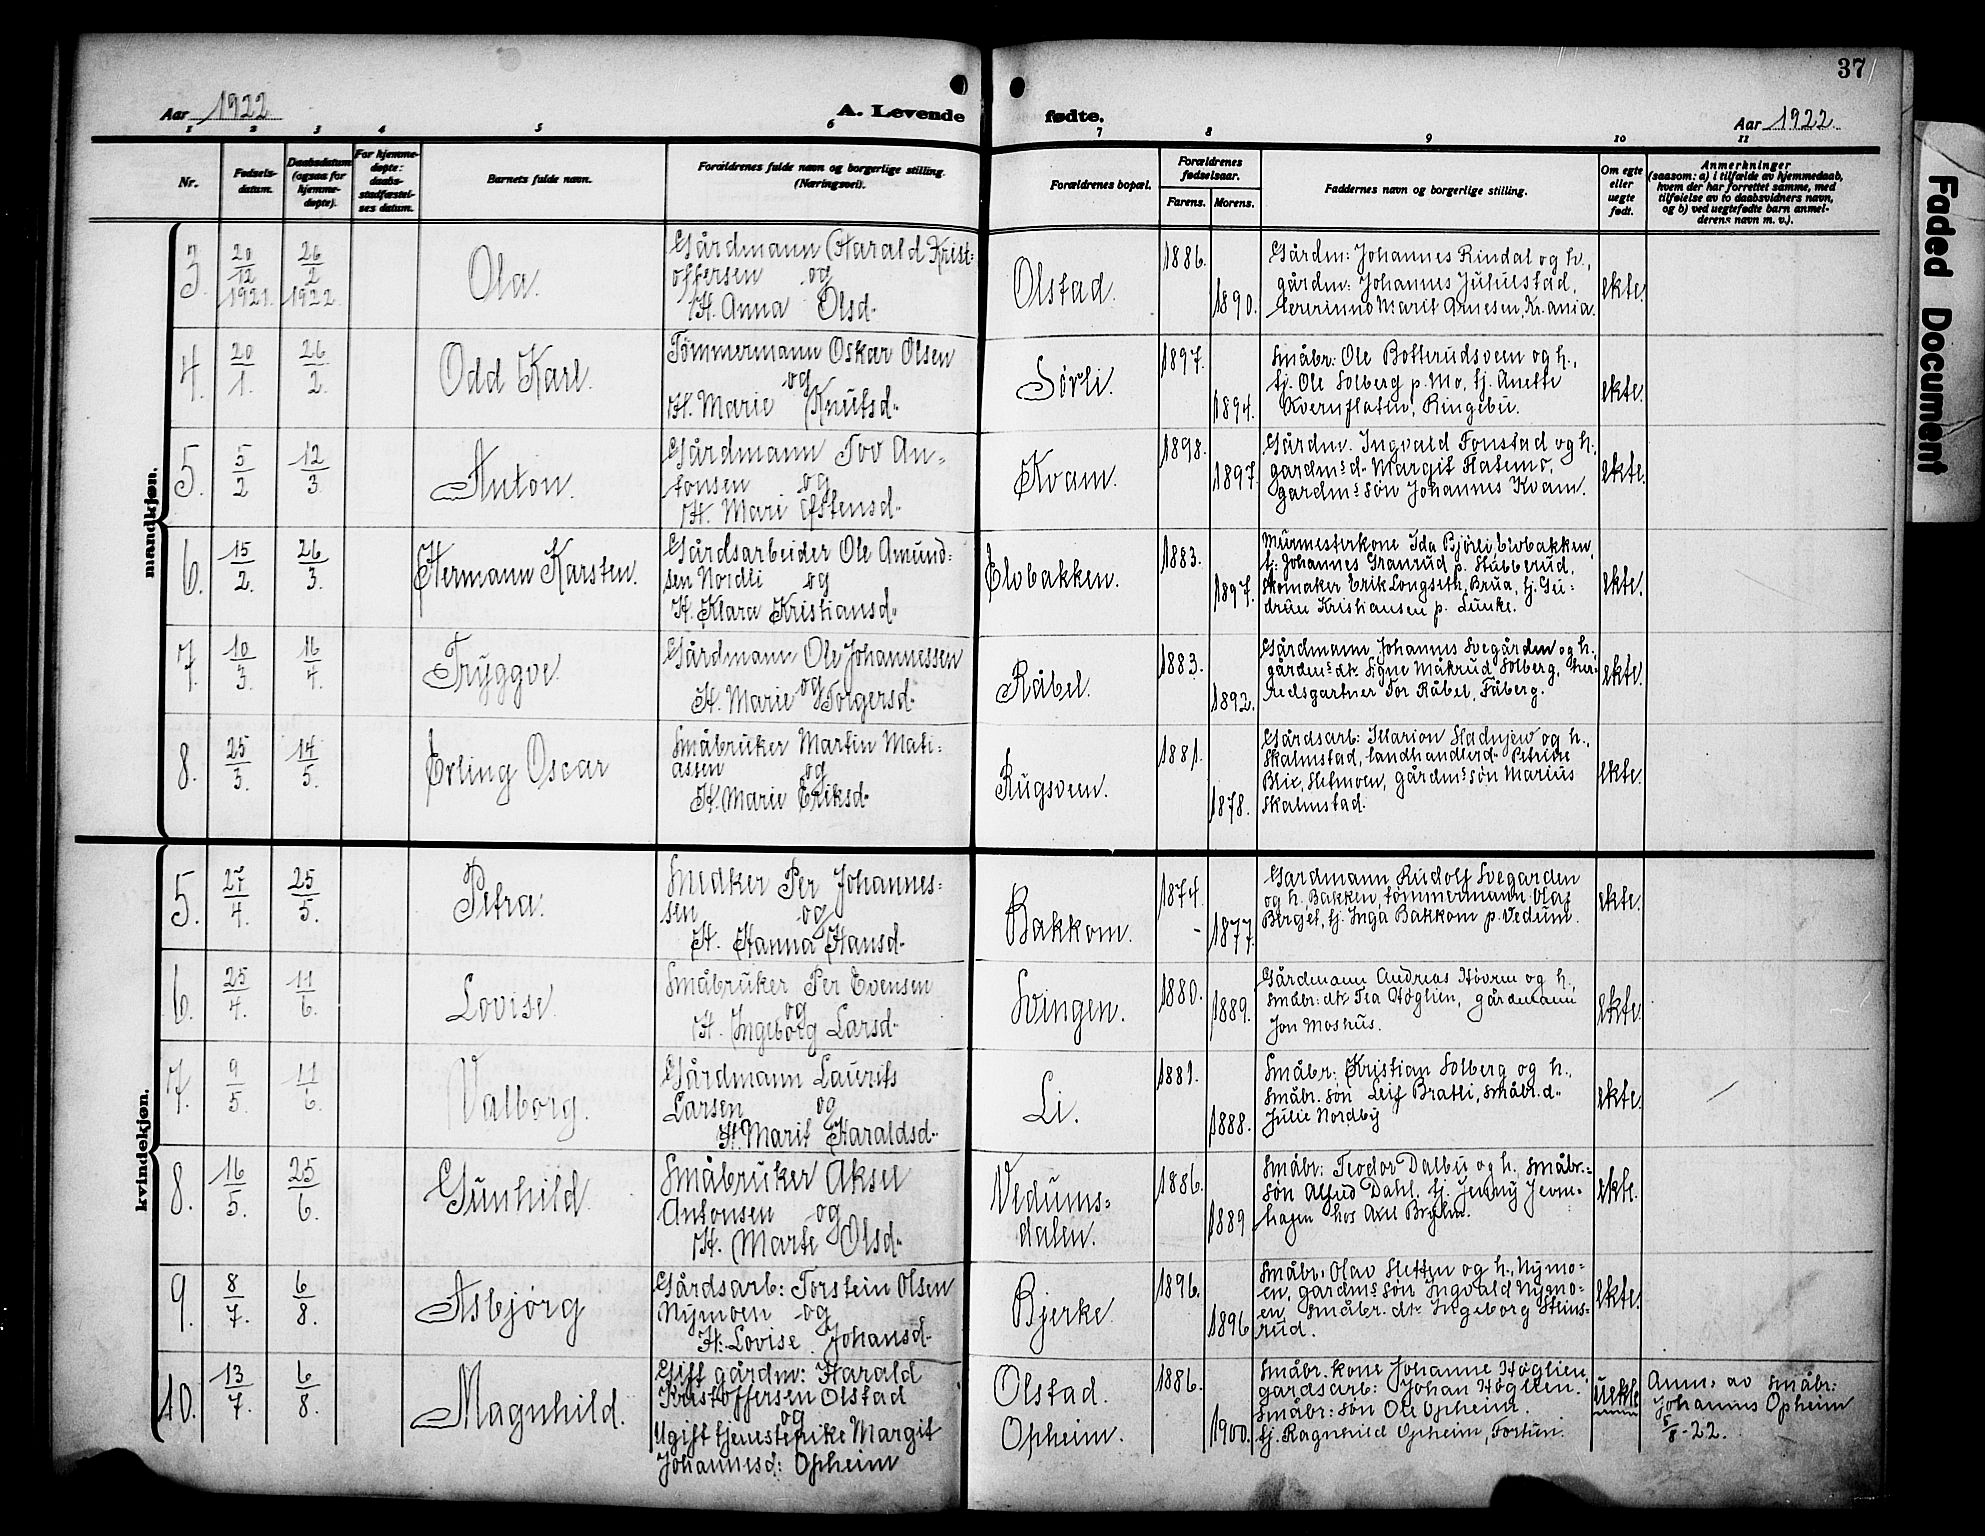 37
Aar 1922
A. Levende
fødte.
Aar 1922.
1 2 3 4 5 6 7 8 9 10 11
Nr.
Fødsels-
datum.
Daabsdatum
(ogsaa for
hjemme-
døpte).
For hjemme-
døpte:
daabs-
stadfæstel-
ses datum.
Barnets fulde navn.
Forældrenes fulde navn og borgerlige stilling.
(Næringsvei).
Forældrenes bopæl.
Forældrenes
fødselsaar.
Farens. Morens.
Faddernes navn og borgerlige stilling.
Om egte
eller
uegte
født.
Anmerkninger
(saasom: a) i tilfælde av hjemmedaab,
hvem der har forrettet samme, med
tilføielse av to daabsvidners navn,
og b) ved uegtefødte barn anmel-
derens navn m. v.).
mandkjøn.
3. 20/12 1921. 26/2 1922. Ola.
Gårdmann Harald Krist-
offersen og
H. Anna Olsd.
Olstad. 1886. 1890.
Gårdm: Johannes Rindal og h.,
gårdm: Johannes Julustad,
Marit Arnesen, Kr.ania.
ekte.
4. 20/1. 26/2. Odd Karl.
Tømmermann Oskar Olsen
og
H. Marie Knutsd.
Sørli. 1897. 1894.
Småbr: Ole Botterudsveen og h.,
tj. Ole Solberg p. Mo, tj. Anette
Kvernflaten, Ringebu.
ekte.
5. 5/2 12/3 Anton.
Gårdmann Tov An-
tonsen og
H. Mari Østensd.
Kvam. 1898. 1897.
Gårdm. Ingvald Fonstad og h.
gardm.s d. Margit Flatemo,
gardm.s søn Johannes Kvam.
ekte.
6. 15/2. 26/3. Hermann Karsten.
Gårdsarbeider Ole Amund-
sen Nordli og
H. Klara Kristiansd.
Elvbakken. 1883. 1897.
Murmesterkone Ida Bjørli, Elvbakken,
tj. Johannes Granrud p. Stubberud,
skomaker Erik Longseth, Brua, tj. Gu-
drun Kristiansen p. Lunke.
ekte.
7. 10/3. 16/4. Tryggve
Gårdmann Ole Johannessen
og
H. Marie Torgersd.
Råbel. 1883. 1892.
Gårdmann Johannes Svegården og h.
gårdm.s dt. Signe Måkrud Solberg, her-
redsgartner Tor Råbel, Fåberg.
ekte.
8. 25/3. 14/5. Erling Oscar
Småbruker Martin Mati-
assen og
H. Marie Eriksd.
Rugsveen. 1881. 1878.
Gårdsarb: Ilarion Sladnjew og h.,
Skalmstad, landhandlerd. Petrine
Blix, Helmoen, gårdm.s søn Marius
Skalmstad.
ekte.
kvindekjøn.
5. 27/4. 25/5. Petra.
Snedker Per Johannes-
sen og
H. Hanna Hansd.
Bakkom. 1874. 1877.
Gardmann Rudolf Svegarden
og h, Bakken, tømmermann Olaf
Berget, tj. Inga Bakkom p. Vedum.
ekte.
6. 25/4. 11/6. Lovise.
Småbruker Per Evensen
og
H. Ingeborg Larsd.
Svingen. 1880. 1889.
Gårdmann Andreas Hovren og h.,
småbr: dt. Tea Høglien, gårdmann
Jon Moshus.
ekte.
7. 9/5. 11/6. Valborg.
Gårdmann Laurits
Larsen og
H. Marit Haraldsd.
Li. 1881. 1888.
Småbr: Kristian Solberg og h.,
småbr. søn Leif Bratli, småbr. d.
Julie Nordby
ekte.
8. 16/5. 25/6. Gunhild.
Småbruker Aksel
Antonsen og
H. Marte Olsd.
Vedums-
dalen. 1886. 1889
Småbr: Teodor Dalbu og h. småbr.-
søn Alfred Dahl, tj. Jenny Jevne-
hagen hos Axel
ekte.
9. 8/7. 6/8. Asbjørg
Gårdsarb: Torstein Olsen
Nymoen og
H: Lovise Johansd.
Bjerke. 1896. 1896
Småbr. Olav Sletten og h., Nymo-
en, gardm.s søn Ingvald Nymo-
en, småbr. dt. Ingeborg Steins-
rud.
ekte.
10. 13/7. 6/8. Magnhild.
Gift gårdm: Harald
Kristoffersen Olstad
og
Ugift tjenestepike Margit
Johannesd: Opheim
Olstad.
Opheim. 1886. 1900.
Småbr. kone Johanne Høglien,
gardsarb: Johan Høglien.
Småbr: søn Ole Opheim.
tj. Ragnhild Opheim,
uekte
Anm. av småbr:
Johannes Opheim
5/8-22.
Faded Document